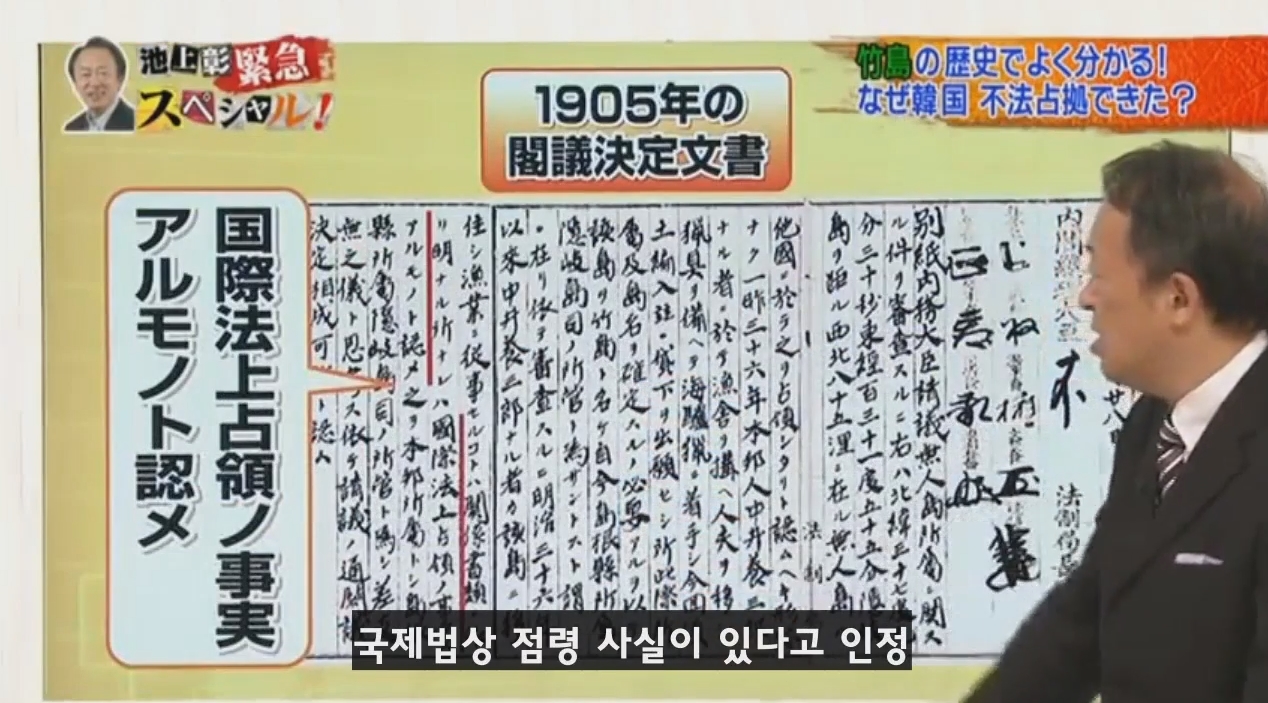 池上彰緊急
スペシャル!
竹島の歴史でよく分かる!
なぜ韓国 不法占拠できた?
1905年の
閣議決定文書
国際法上占領ノ事実
アルモノト認メ
法制局長
別紙内務大臣請議無人島所属ニ関ス
ル件ヲ審査スルニ右ハ北緯三十七度
分三十秒東経百三十一度五十五分隠岐
島ヲ距ル西北八十五浬ニ在ル無人島
他國ニ於テ之ヲ占領シタリト認ムヘキ形
ナク一昨三十六年本邦人中井養三
ナル者ニ於テ漁舎ヲ構ヘ人夫ヲ移
猟具ヲ備ヘテ海驢猟ニ着手シ今回
土編入並ニ貸下ヲ出願セシ所此際
属及島名ヲ確定スルノ必要アルヲ以
該島ヲ竹島ト名ケ自今島根縣所
隠岐島司ノ所管ト為サントスト謂
ニ在リ依テ審査スルニ明治三十六
以来中井養三郎ナル者カ該島ニ移
住シ漁業ニ従事セルコトハ関係書類
リ明ナル所ナレハ國際法上占領ノ事
アルモノト認メ之ヲ本邦所属トシ島
縣所属隠岐島司ノ所管ト為シ差支
無之儀ト思考ス依テ請議ノ通閣議
決定相成可然ト認ム
국제법상 점령 사실이 있다고 인정